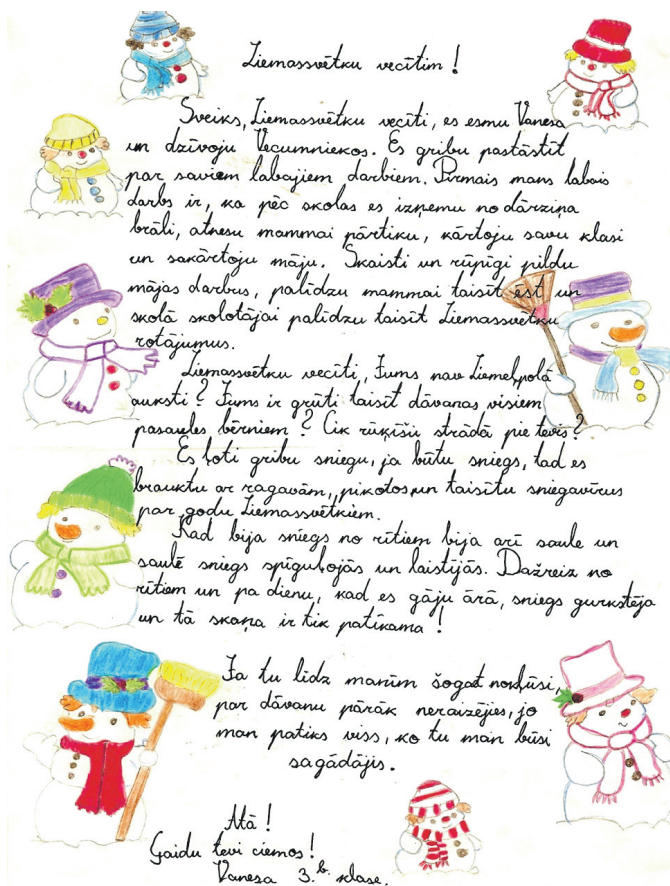 Ziemassvētku vecītim!
Sveiks, Ziemassvētku vecīti, es esmu Vanesa
un dzīvoju Vecumniekos. Es gribu pastāstīt
par saviem labajiem darbiem. Pirmais mans labais
darbs ir, ka pēc skolas es izņemu no dārziņa
brāli, atnesu mammai pārtiku, kārtoju savu klasi
un sakārtoju māju. Skaisti un rūpīgi pildu
mājas darbus, palīdzu mammai taisīt ēst un
skolā skolotājai palīdzu taisīt Ziemassvētku
rotājumus.
Ziemassvētku vecīti, Jums nav Ziemeļpolā
auksti? Jums ir grūti taisīt dāvanas visiem
pasaules bērniem? Cik rūķīši strādā pie tevis?
Es ļoti gribu sniegu, ja būtu sniegs, tad es
brauktu ar ragavām, pikotos un taisītu sniegavīrus
par godu Ziemassvētkiem.
Kad bija sniegs no rītiem bija arī saule un
saulē sniegs spīguļojās un laistījās. Dažreiz no
rītiem un pa dienu, kad es gāju ārā, sniegs gurkstēja
un tā skaņa ir tik patīkama!
Ja tu līdz manīm šogat nokļūsi,
par dāvanu pārāk neraizējies, jo
man patiks viss, ko tu man būsi
sagādājis.
Atā!
Gaidu tevi ciemos!
Vanesa 3.b klase.